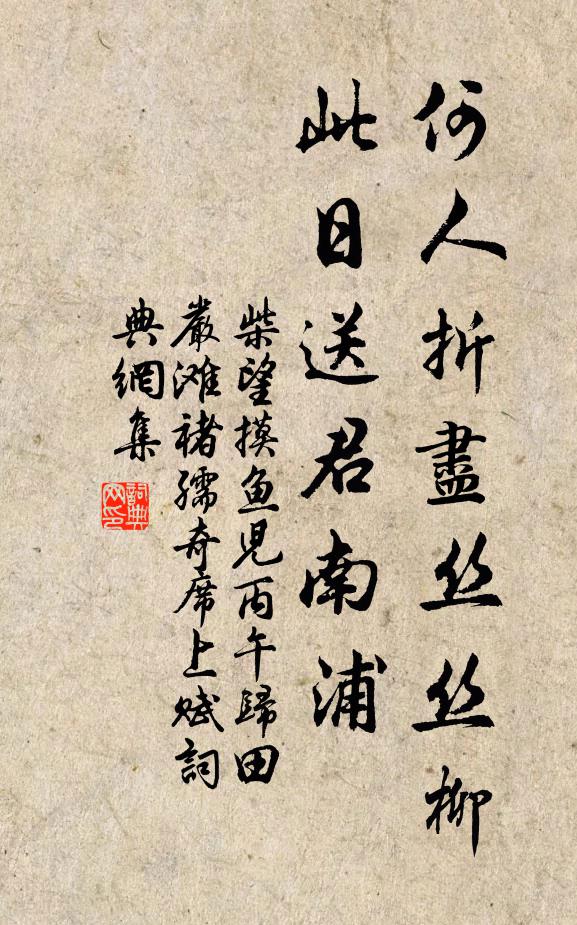 何人折盡丝丝柳
此日送君南浦
柴望摸鱼児丙午歸田
嚴滩褚孺奇席上赋詞
典網集
詞典网印